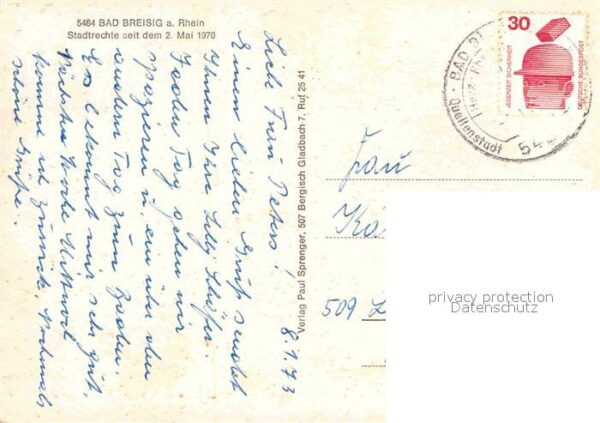 5484 BAD BREISIG a. Rhein
Stadtrechte seit dem 2. Mai 1970
8.1.73
Liebe Frau Peters!
Einen lieben Gruß sendet
Ihnen Ihre Lilly
Jeden Tag gehen wir
spazieren u. ein über den
andern Tag zum Baden.
Es bekommt mir sehr gut.
Nächste Woche Mittwoch
komme ich zurück. Nochmals
schöne Grüße.
Verlag Paul Sprenger, 507 Bergisch Gladbach 7, Ruf 25 41
30
JEDERZEIT SICHERHEIT
DEUTSCHE BUNDESPOST
BAD
Quellenstadt
54
Frau
Kä
509 L
privacy protection
Datenschutz